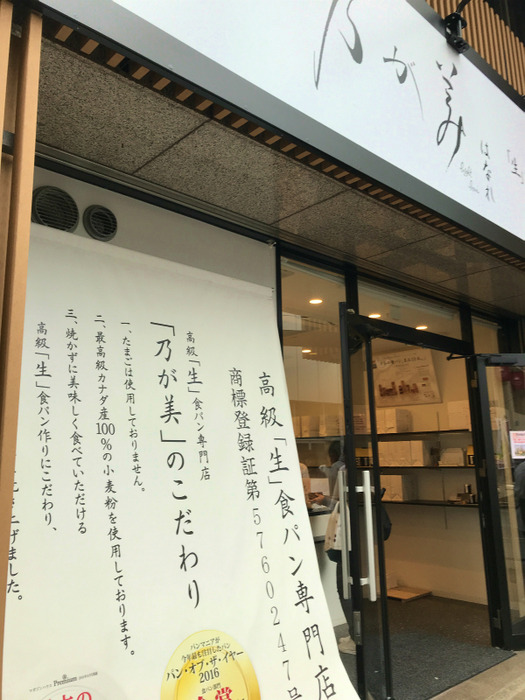 乃が美
はなれ
「生」
高級「生」食パン専門店
商標登録証第5760247号
高級「生」食パン専門店
「乃が美」のこだわり
一、たまごは使用しておりません。
二、最高級カナダ産100%の小麦粉を使用しております。
三、焼かずに美味しく食べていただける
高級「生」食パン作りにこだわり、
げました。
パンマニアが
今年最も注目したパン
パン・オブ・ザ・イヤー
2016
食パン部門
金賞
Premium